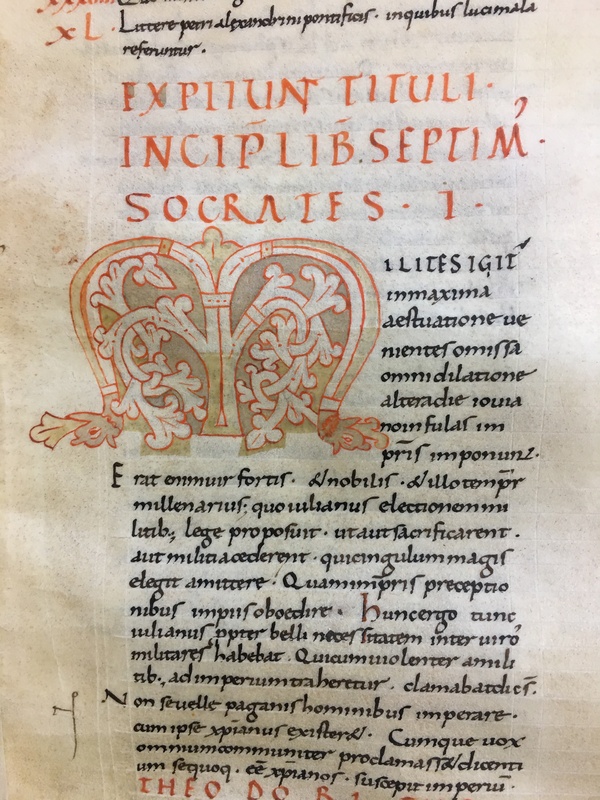 XL. Littere petri alexandrini pontificis · in quibus luci mala
referuntur.
EXPLIIUNT TITULI·
INCIP̄ LIB̄. SEPTIM̓·
SOCRATES · I ·
MILITES IGIT̓
in maxima
aestuatione ue
nientes omissa
omni dilatione
altera die iouia
no infulas im
p̄ris imponunt.
Erat enim uir fortis · & nobilis · & illo temp̄r
millenarius; quo iulianus electionem mi
litib; lege proposuit · ut aut sacrificarent ·
aut militia cederent · qui cingulum magis
elegit amittere · Quam imp̄ris preceptio
nibus impiis oboedire · hunc ergo tunc
iulianus ppter belli necessitatem inter uiro
militares habebat · Qui cum uiolenter a mili
tib; ad imperium traheretur · clamabat dices̄.
Non se uelle paganis hominibus imperare ·
cum ipse xp̄ianus exister& · Cumque uox
omnium communiter proclamass& dicenti
um se quoq · eē xp̄ianos · suscepit imperiū ·
THEODO